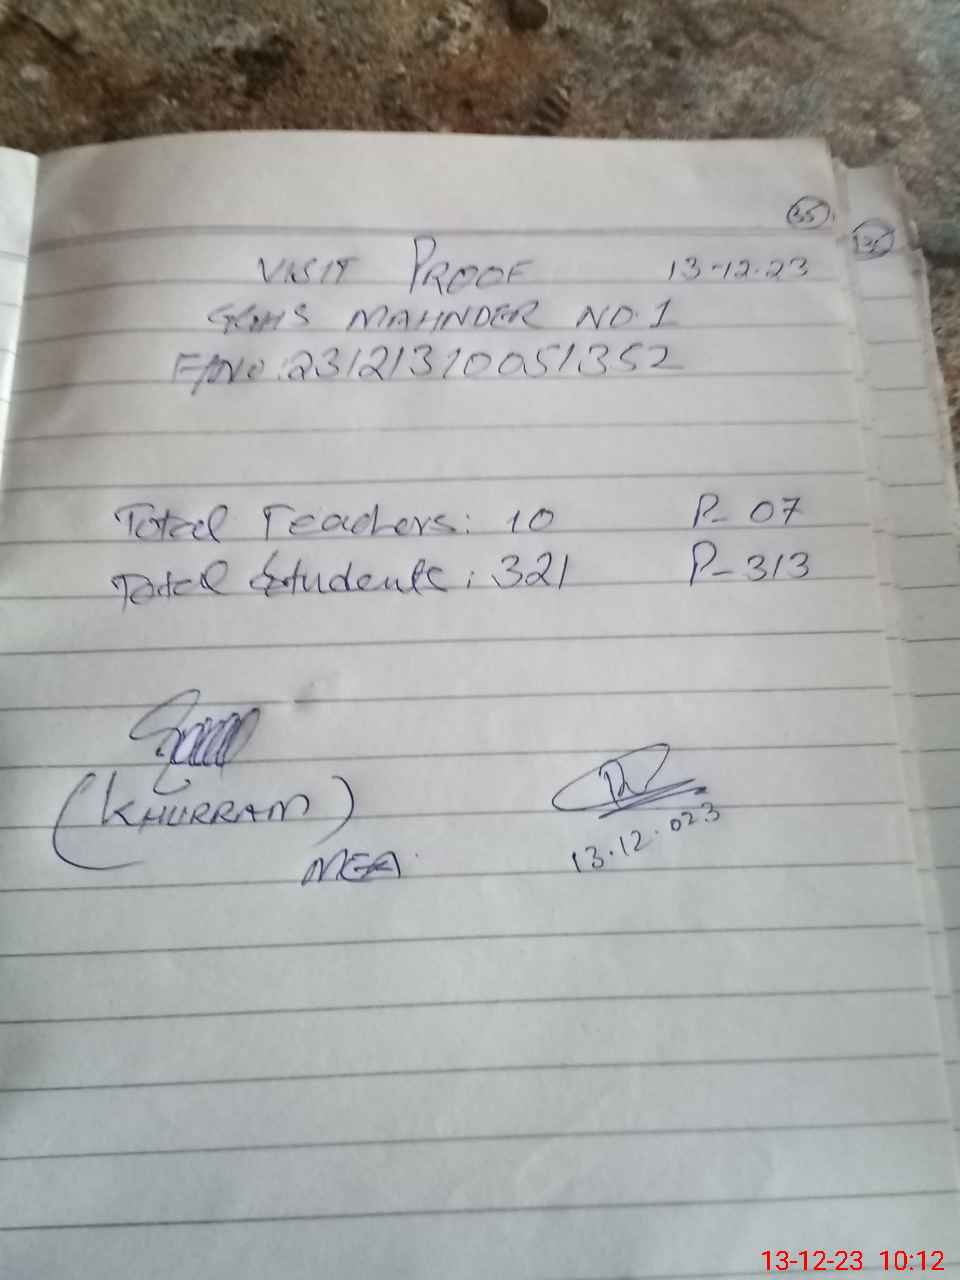 35
VISIT PROOF 13-12-23
GGHS MAHNDER NO.1
F/No: 23121310051352
Total Teachers: 10 P- 07
Total Students: 321 P- 313
(KHURRAM)
MEA
13.12.023
13-12-23 10:12